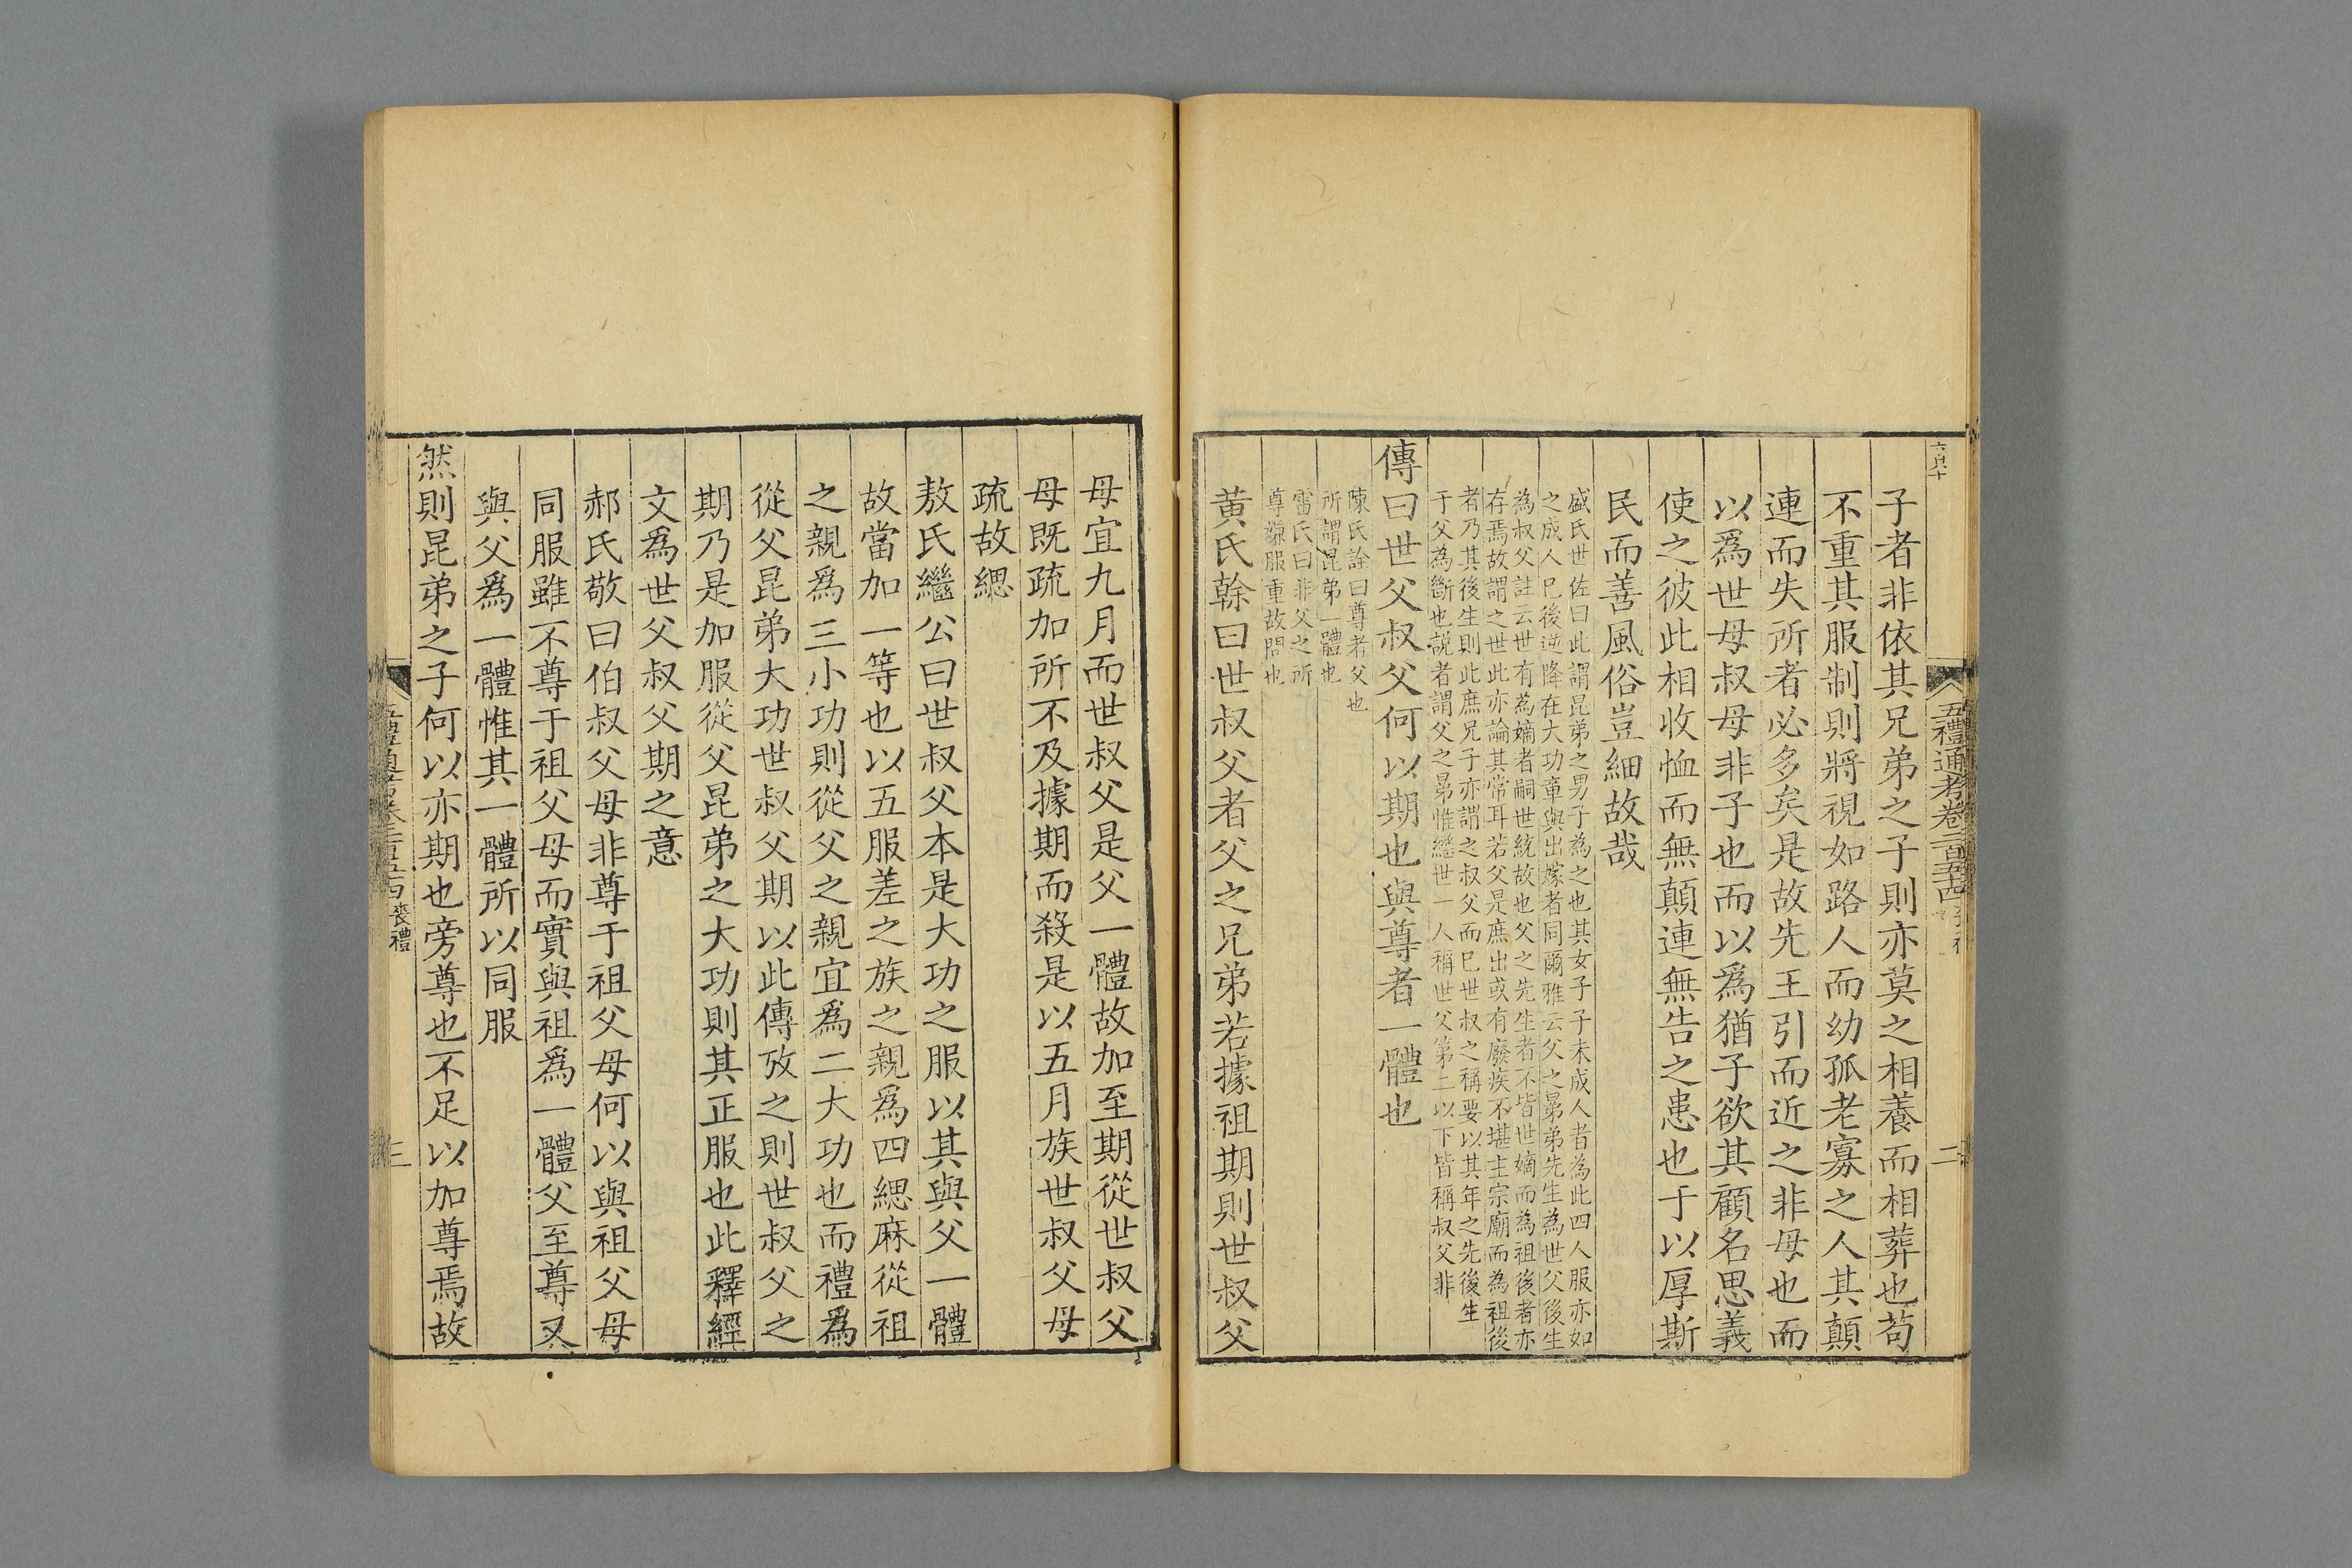 子者非依其兄弟之子則亦莫之相養而相葬也苟
不重其服制則將視如路人而幼孤老寡之人其顛
連而失所者必多矣是故先王引而近之非母也而
以爲世母叔母非子也而以爲猶子欲其顧名思義
使之彼此相收恤而無顛連無告之患也于以厚斯
民而善風俗豈細故哉
盛氏世佐曰此謂昆弟之男子為之也其女子子未成人者為此四人服亦如
之成人巳後逆降在大功章與出嫁者同爾雅云父之晜弟先生為世父後生
為叔父註云世有為嫡者嗣世統故也父之先生者不皆世嫡而為祖後者亦
存焉故謂之世此亦論其常耳若父是庶出或有廢疾不堪主宗廟而為祖後
者乃其後生則此庶兄子亦謂之叔父而巳世叔之稱要以其年之先後生
于父為斷也説者謂父之晜惟繼世一人稱世父第二以下皆稱叔父非
傳曰世父叔父何以期也與尊者一體也
陳氏詮曰尊者父也
所謂昆弟一體也
雷氏曰非父之所
尊嫌服重故問也
黄氏榦曰世叔父者父之兄弟若據祖期則世叔父
五禮通考卷二百五十四
二
母宜九月而世叔父是父一體故加至期從世叔父
母既疏加所不及據期而殺是以五月族世叔父母
疏故緦
敖氏繼公曰世叔父本是大功之服以其與父一體
故當加一等也以五服差之族之親爲四緦麻從祖
之親爲三小功則從父之親宜爲二大功也而禮爲
從父昆弟大功世叔父期以此傳攷之則世叔父之
期乃是加服從父昆弟之大功則其正服也此釋經
文爲世父叔父期之意
郝氏敬曰伯叔父母非尊于祖父母何以與祖父母
同服雖不尊于祖父母而實與祖爲一體父至尊又
與父爲一體惟其一體所以同服
然則昆弟之子何以亦期也旁尊也不足以加尊焉故
喪禮
三